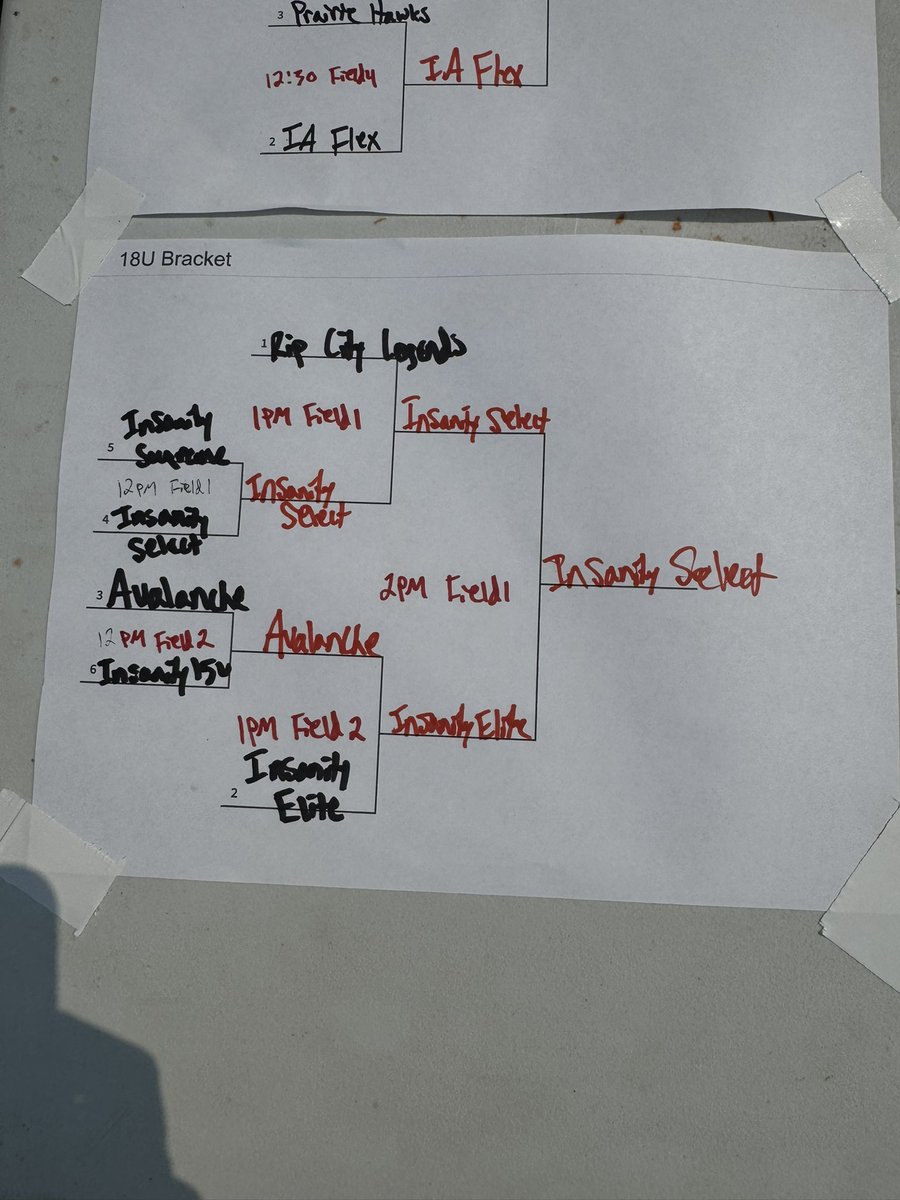 3 Prairie Hawks
12:30 Field 4
IA Flex
2 IA Flex
18U Bracket
1 Rip City Legends
1PM Field 1
Insanity Select
Insanity
5 Supreme
12PM Field 1
Insanity
Select
4 Insanity
Select
3 Avalanche
12PM Field 2
Avalanche
6 Insanity 15U
2PM Field 1
Insanity Select
1PM Field 2
Insanity Elite
Insanity
2 Elite